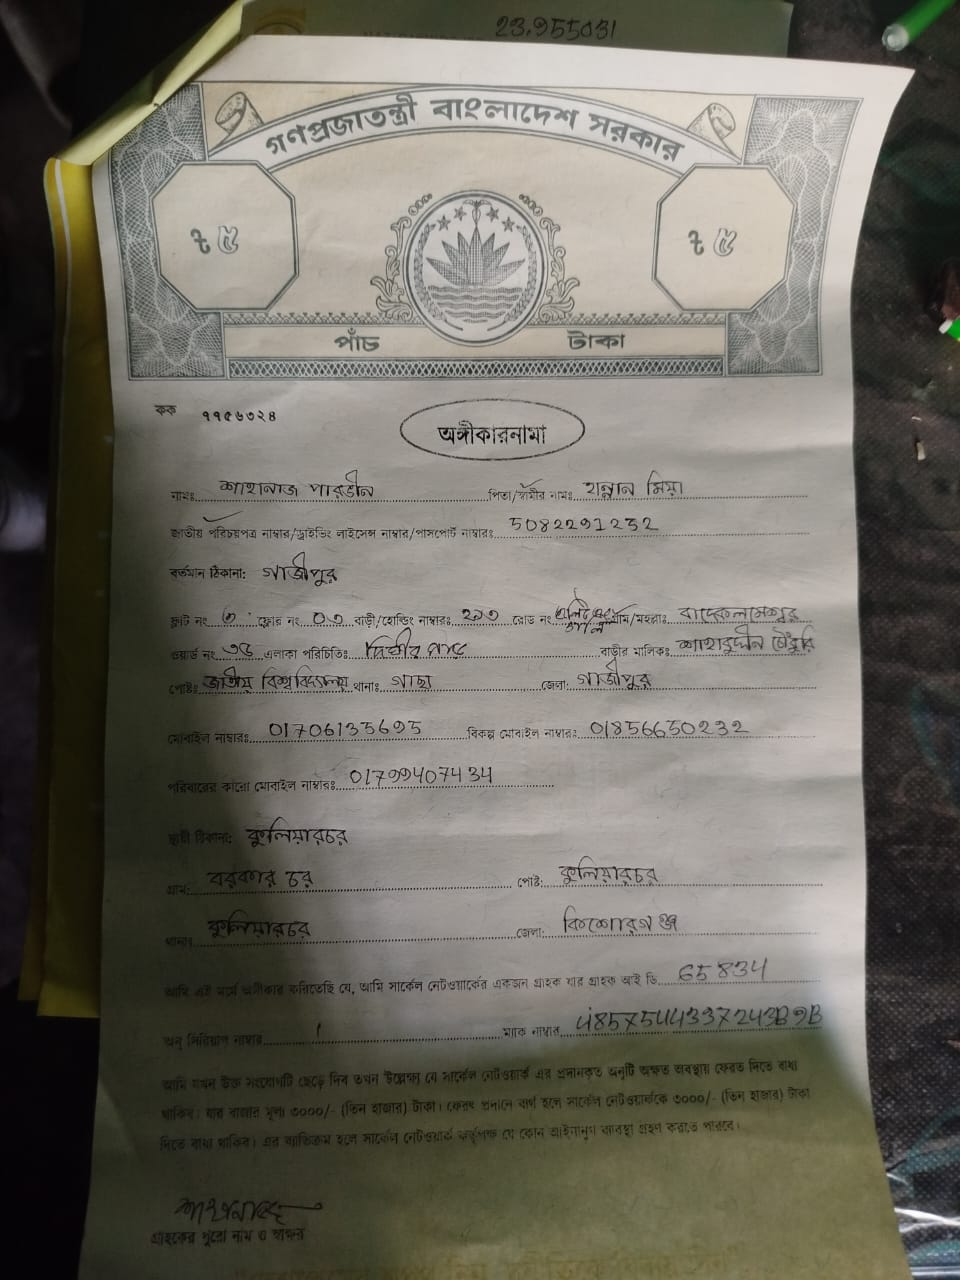 23.955031
গণপ্রজাতন্ত্রী বাংলাদেশ সরকার
৳ ৫ ৳ ৫
পাঁচ টাকা
কক ৭৭৫৬৩২৪
অঙ্গীকারনামা
নামঃ শাহানাজ পারভীন পিতা/স্বামীর নামঃ হান্নান মিয়া
জাতীয় পরিচয়পত্র নাম্বার/ড্রাইভিং লাইসেন্স নাম্বার/পাসপোর্ট নাম্বারঃ 5082291232
বর্তমান ঠিকানা: গাজীপুর
ফ্লাট নং ৩ ফ্লোর নং ০৩ বাড়ী/হোল্ডিং নাম্বারঃ ২৯৩ রোড নং গ্রাম/মহল্লাঃ
ওয়ার্ড নং ৩৫ এলাকা পরিচিতিঃ দিঘীর বাড়ীর মালিকঃ শাহাবুদ্দীন চৌধুরি
পোষ্টঃ জাতীয় বিশ্ববিদ্যালয় থানাঃ গাছা জেলা: গাজীপুর
মোবাইল নাম্বারঃ 01706135695 বিকল্প মোবাইল নাম্বারঃ 01856650232
পরিবারের কারো মোবাইল নাম্বারঃ 01799407434
স্থায়ী ঠিকানা: কুলিয়ারচর
গ্রাম: বরকার চর পোষ্ট: কুলিয়ারচর
থানাঃ কুলিয়ারচর জেলা: কিশোরগঞ্জ
আমি এই মর্মে অঙ্গীকার করিতেছি যে, আমি সার্কেল নেটওয়ার্কের একজন গ্রাহক যার গ্রাহক আই ডি 65834
অনু সিরিয়াল নাম্বার ম্যাক নাম্বার 4857544337243B9B
আমি যখন উক্ত সংযোগটি ছেড়ে দিব তখন উল্লেক্ষ্য যে সার্কেল নেটওয়ার্ক এর প্রদানকৃত অনুটি অক্ষত অবস্থায় ফেরত দিতে বাধ্য
থাকিব। যার বাজার মূল্য ৩০০০/- (তিন হাজার) টাকা। ফেরৎ প্রদানে ব্যর্থ হলে সার্কেল নেটওয়ার্ককে ৩০০০/- (তিন হাজার) টাকা
দিতে বাধ্য থাকিব। এর ব্যতিক্রম হলে সার্কেল নেটওয়ার্ক কর্তৃপক্ষ যে কোন আইনানুগ ব্যবস্থা গ্রহণ করতে পারবে।
গ্রাহকের পুরো নাম ও স্বাক্ষর